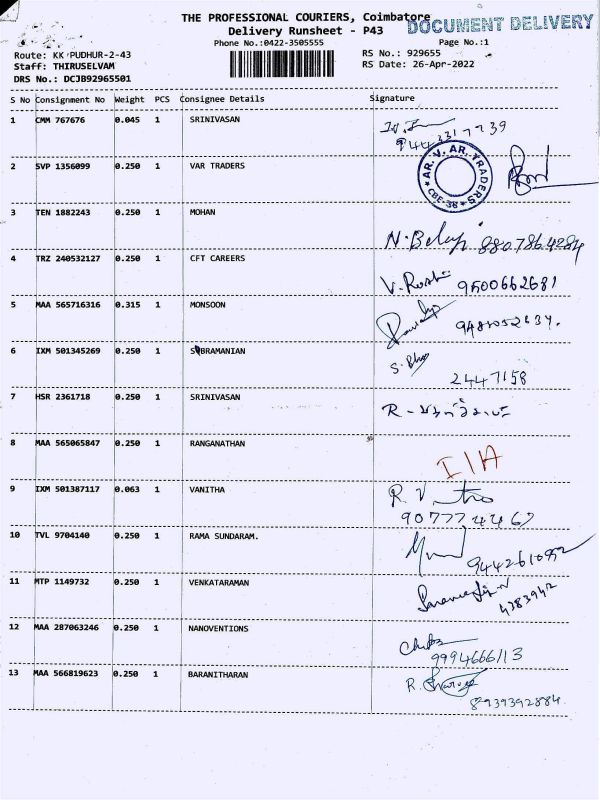 THE PROFESSIONAL COURIERS, Coimbatore
DOCUMENT DELIVERY
Delivery Runsheet - P43
Phone No.:0422-3505555
Page No.:1
Route: KK PUDHUR-2-43
RS No.: 929655
Staff: THIRUSELVAM
RS Date: 26-Apr-2022
DRS No.: DCJB92965501
S No Consignment No Weight PCS Consignee Details Signature
1 CMM 767676 0.045 1 SRINIVASAN
2 SVP 1356099 0.250 1 VAR TRADERS
AR. V. AR. TRADERS
★ CBE-38 ★
3 TEN 1882243 0.250 1 MOHAN
N. Balaji 8807864284
4 TRZ 240532127 0.250 1 CFT CAREERS
9500662681
5 MAA 565716316 0.315 1 MONSOON
6 IXM 501345269 0.250 1 SUBRAMANIAN
2447158
7 HSR 2361718 0.250 1 SRINIVASAN
8 MAA 565065847 0.250 1 RANGANATHAN
I/A
9 IXM 501387117 0.063 1 VANITHA
9077774467
10 TVL 9704140 0.250 1 RAMA SUNDARAM.
11 MTP 1149732 0.250 1 VENKATARAMAN
4383942
12 MAA 287063246 0.250 1 NANOVENTIONS
9994666113
13 MAA 566819623 0.250 1 BARANITHARAN
8939392884.